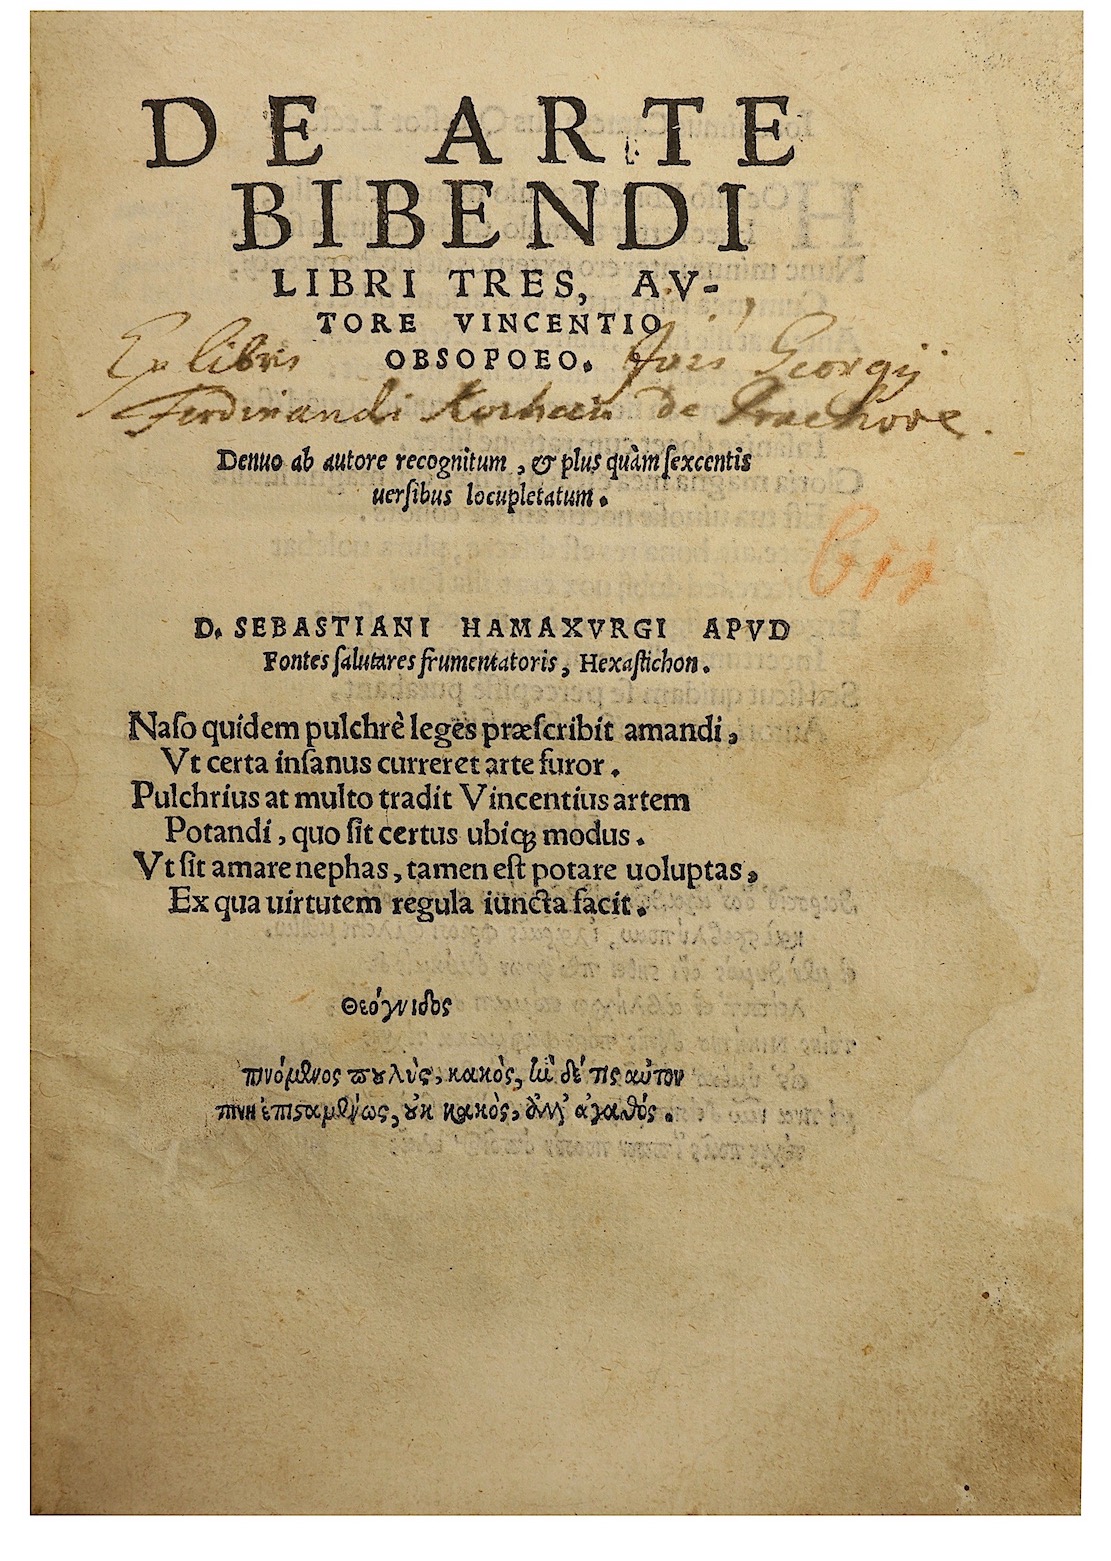 DE ARTE
BIBENDI
LIBRI TRES, AV-
TORE VINCENTIO
OBSOPOEO.
Ex libris Georgij
Ferdinandi de
Denuo ab autore recognitum, & plus quàm sexcentis
uersibus locupletatum.
D. SEBASTIANI HAMAXVRGI APVD
Fontes salutares frumentatoris, Hexastichon.
Naso quidem pulchrè leges præscribit amandi,
Vt certa insanus curreret arte furor.
Pulchrius at multo tradit Vincentius artem
Potandi, quo sit certus ubiq; modus.
Vt sit amare nephas, tamen est potare uoluptas,
Ex qua uirtutem regula iuncta facit.
Θεόγνιδος
πινόμενος πουλὺς, κακὸς, ἢν δέ τις αὐτον
πίνῃ ἐπισταμένως, οὐκ κακὸς, ἀλλ' ἀγαθός.